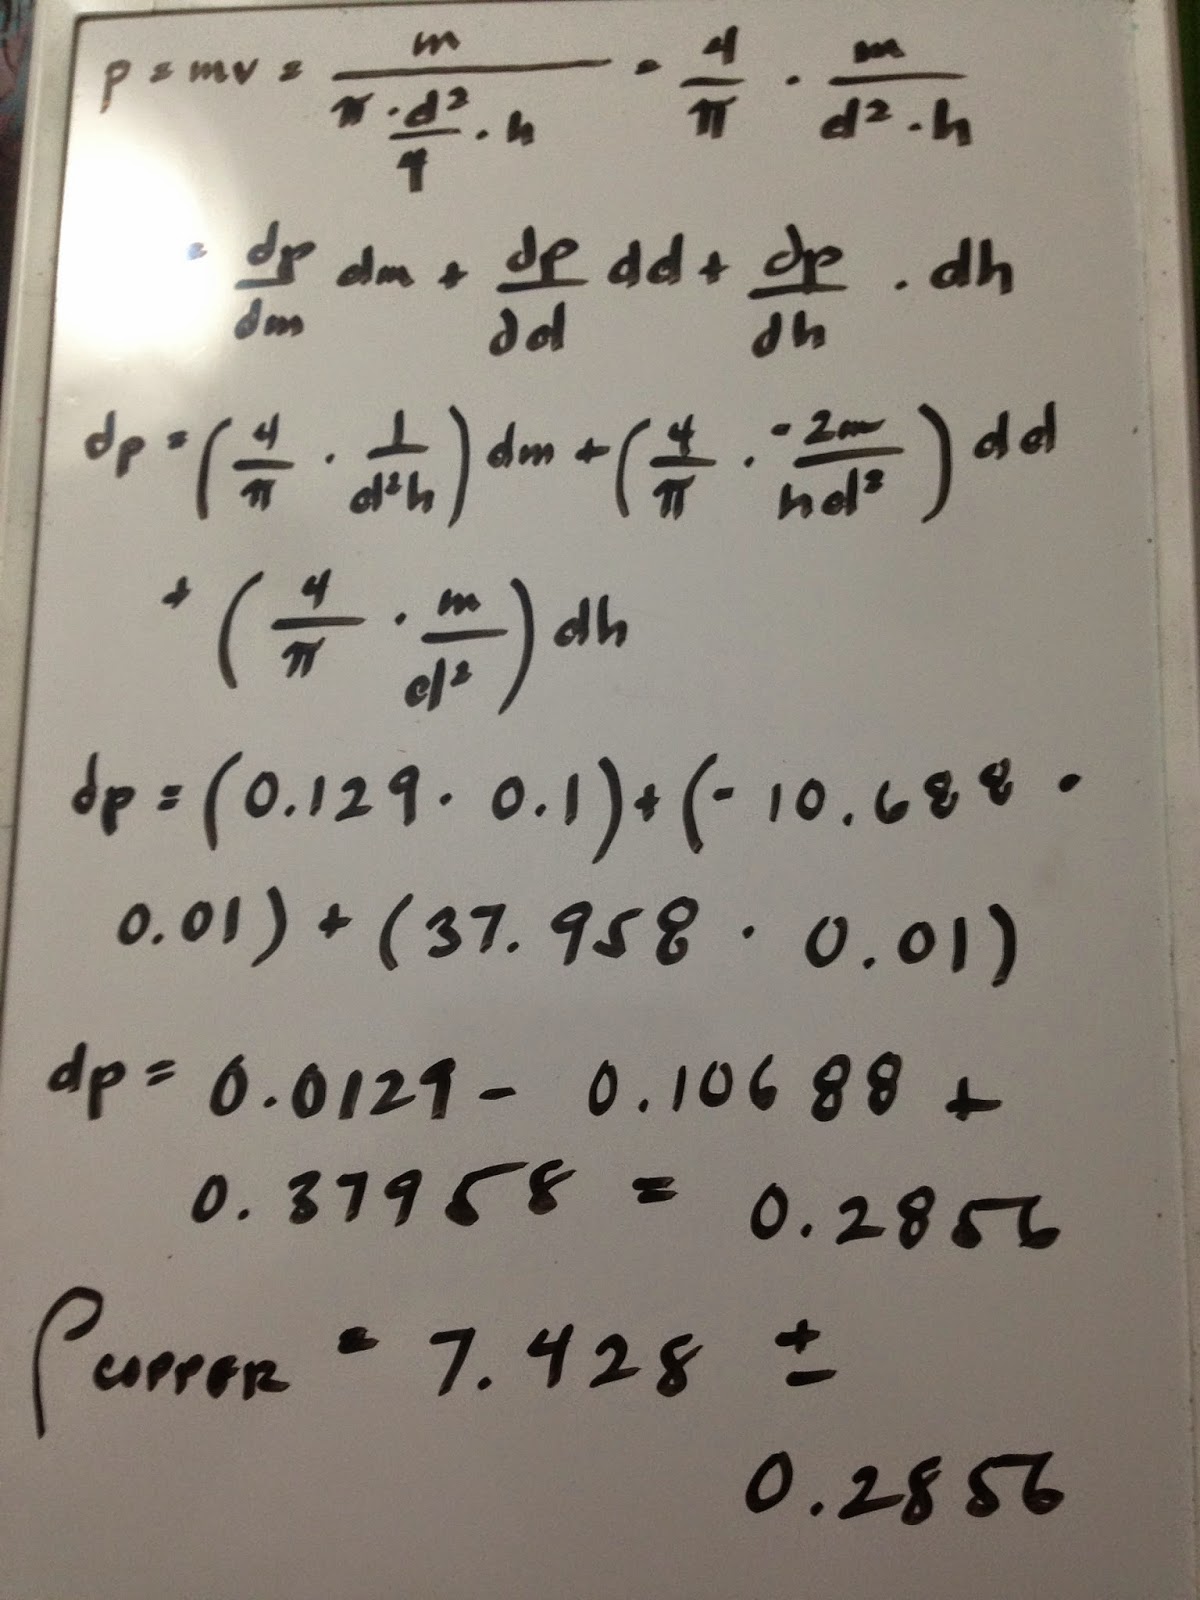 p = mv = m / (π · d² / 4 · h) = 4/π · m / (d² · h)
= dp/dm dm + dp/∂d dd + dp/dh · dh
dp = (4/π · 1/(d²h)) dm + (4/π · -2m/(hd³)) dd
+ (4/π · m/d²) dh
dp = (0.129 · 0.1) + (-10.688 ·
0.01) + (37.958 · 0.01)
dp = 0.0129 - 0.10688 +
0.37958 = 0.2856
ρ COPPER = 7.428 ±
0.2856